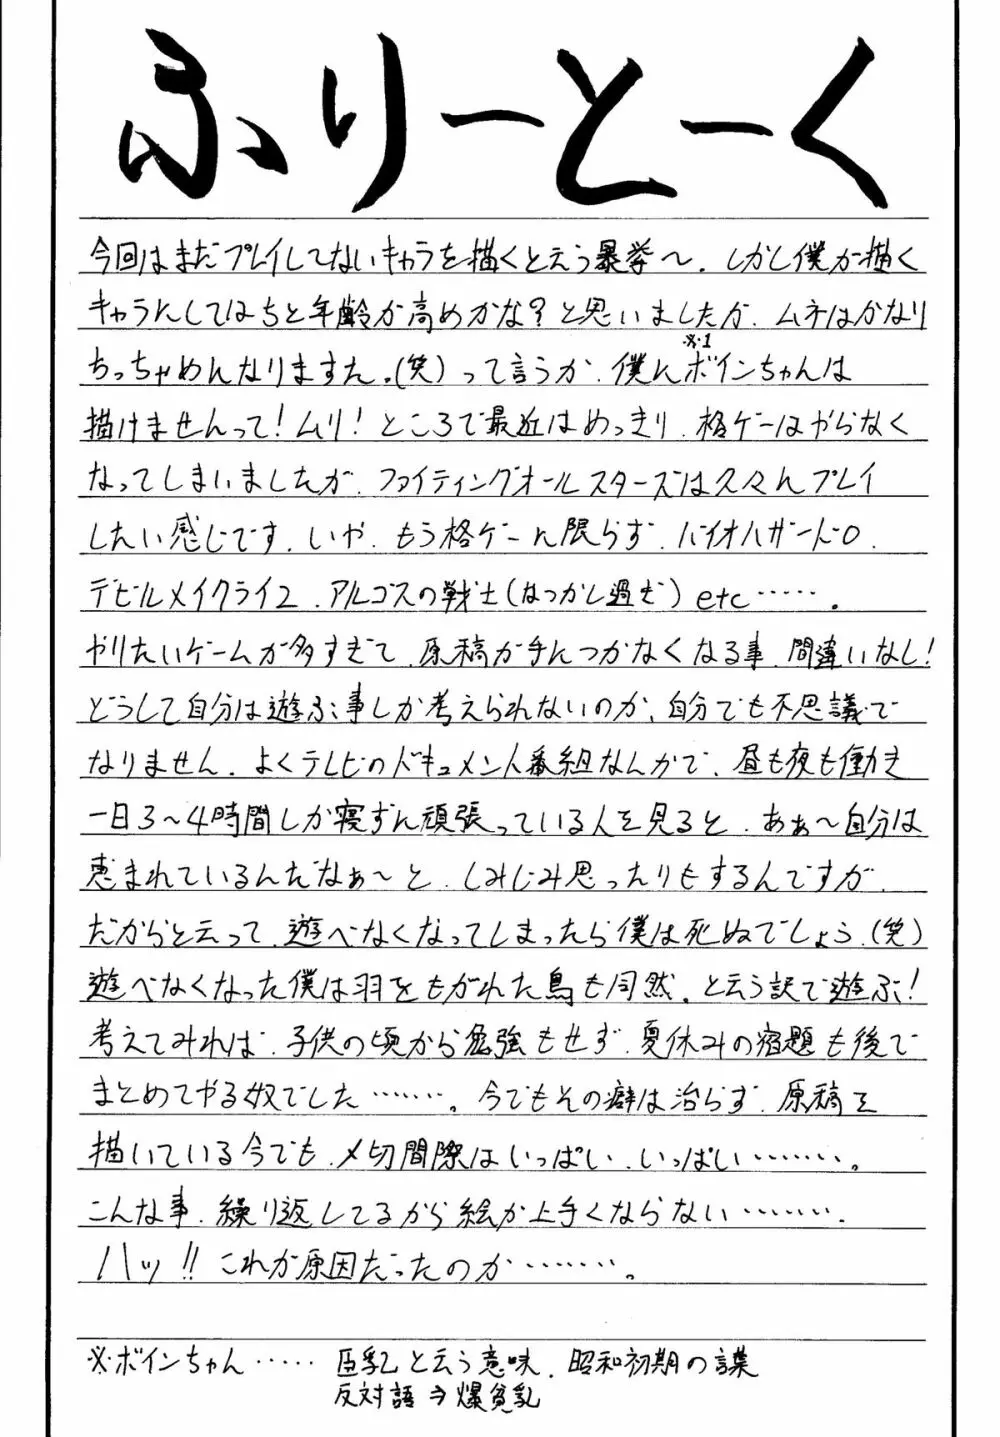 ふりーとーく
今回はまだプレイしてないキャラを描くと云う暴挙〜。しかし僕が描く
キャラにしてはちと年齢が高めかな？と思いましたが、ムネはかなり
ちっちゃめになりますた。(笑)って言うか、僕にボインちゃんは
※・1
描けませんって！ムリ！ところで最近はめっきり、格ゲーはやらなく
なってしまいましたが、ファイティングオールスターズは久々にプレイ
したい感じです。いや、もう格ゲーに限らず、バイオハザード0、
デビルメイクライ2、アルゴスの戦士(なつかし過ぎ)etc……。
やりたいゲームが多すぎて、原稿が手につかなくなる事、間違いなし！
どうして自分は遊ぶ事しか考えられないのか、自分でも不思議で
なりません。よくテレビのドキュメント番組なんかで、昼も夜も働き
一日3〜4時間しか寝ずに頑張っている人を見ると、あぁ〜自分は
恵まれているんだなぁ〜と、しみじみ思ったりもするんですが、
だからと云って、遊べなくなってしまったら僕は死ぬでしょう。(笑)
遊べなくなった僕は羽をもがれた鳥も同然。と云う訳で遊ぶ！
考えてみれば、子供の頃から勉強もせず、夏休みの宿題も後で
まとめてやる奴でした………。今でもその癖は治らず、原稿を
描いている今でも、〆切間際はいっぱい、いっぱい………。
こんな事、繰り返してるから絵が上手くならない………。
ハッ!!これが原因だったのか………。
※・ボインちゃん…… 巨乳と云う意味。昭和初期の言葉
反対語⇒爆貧乳